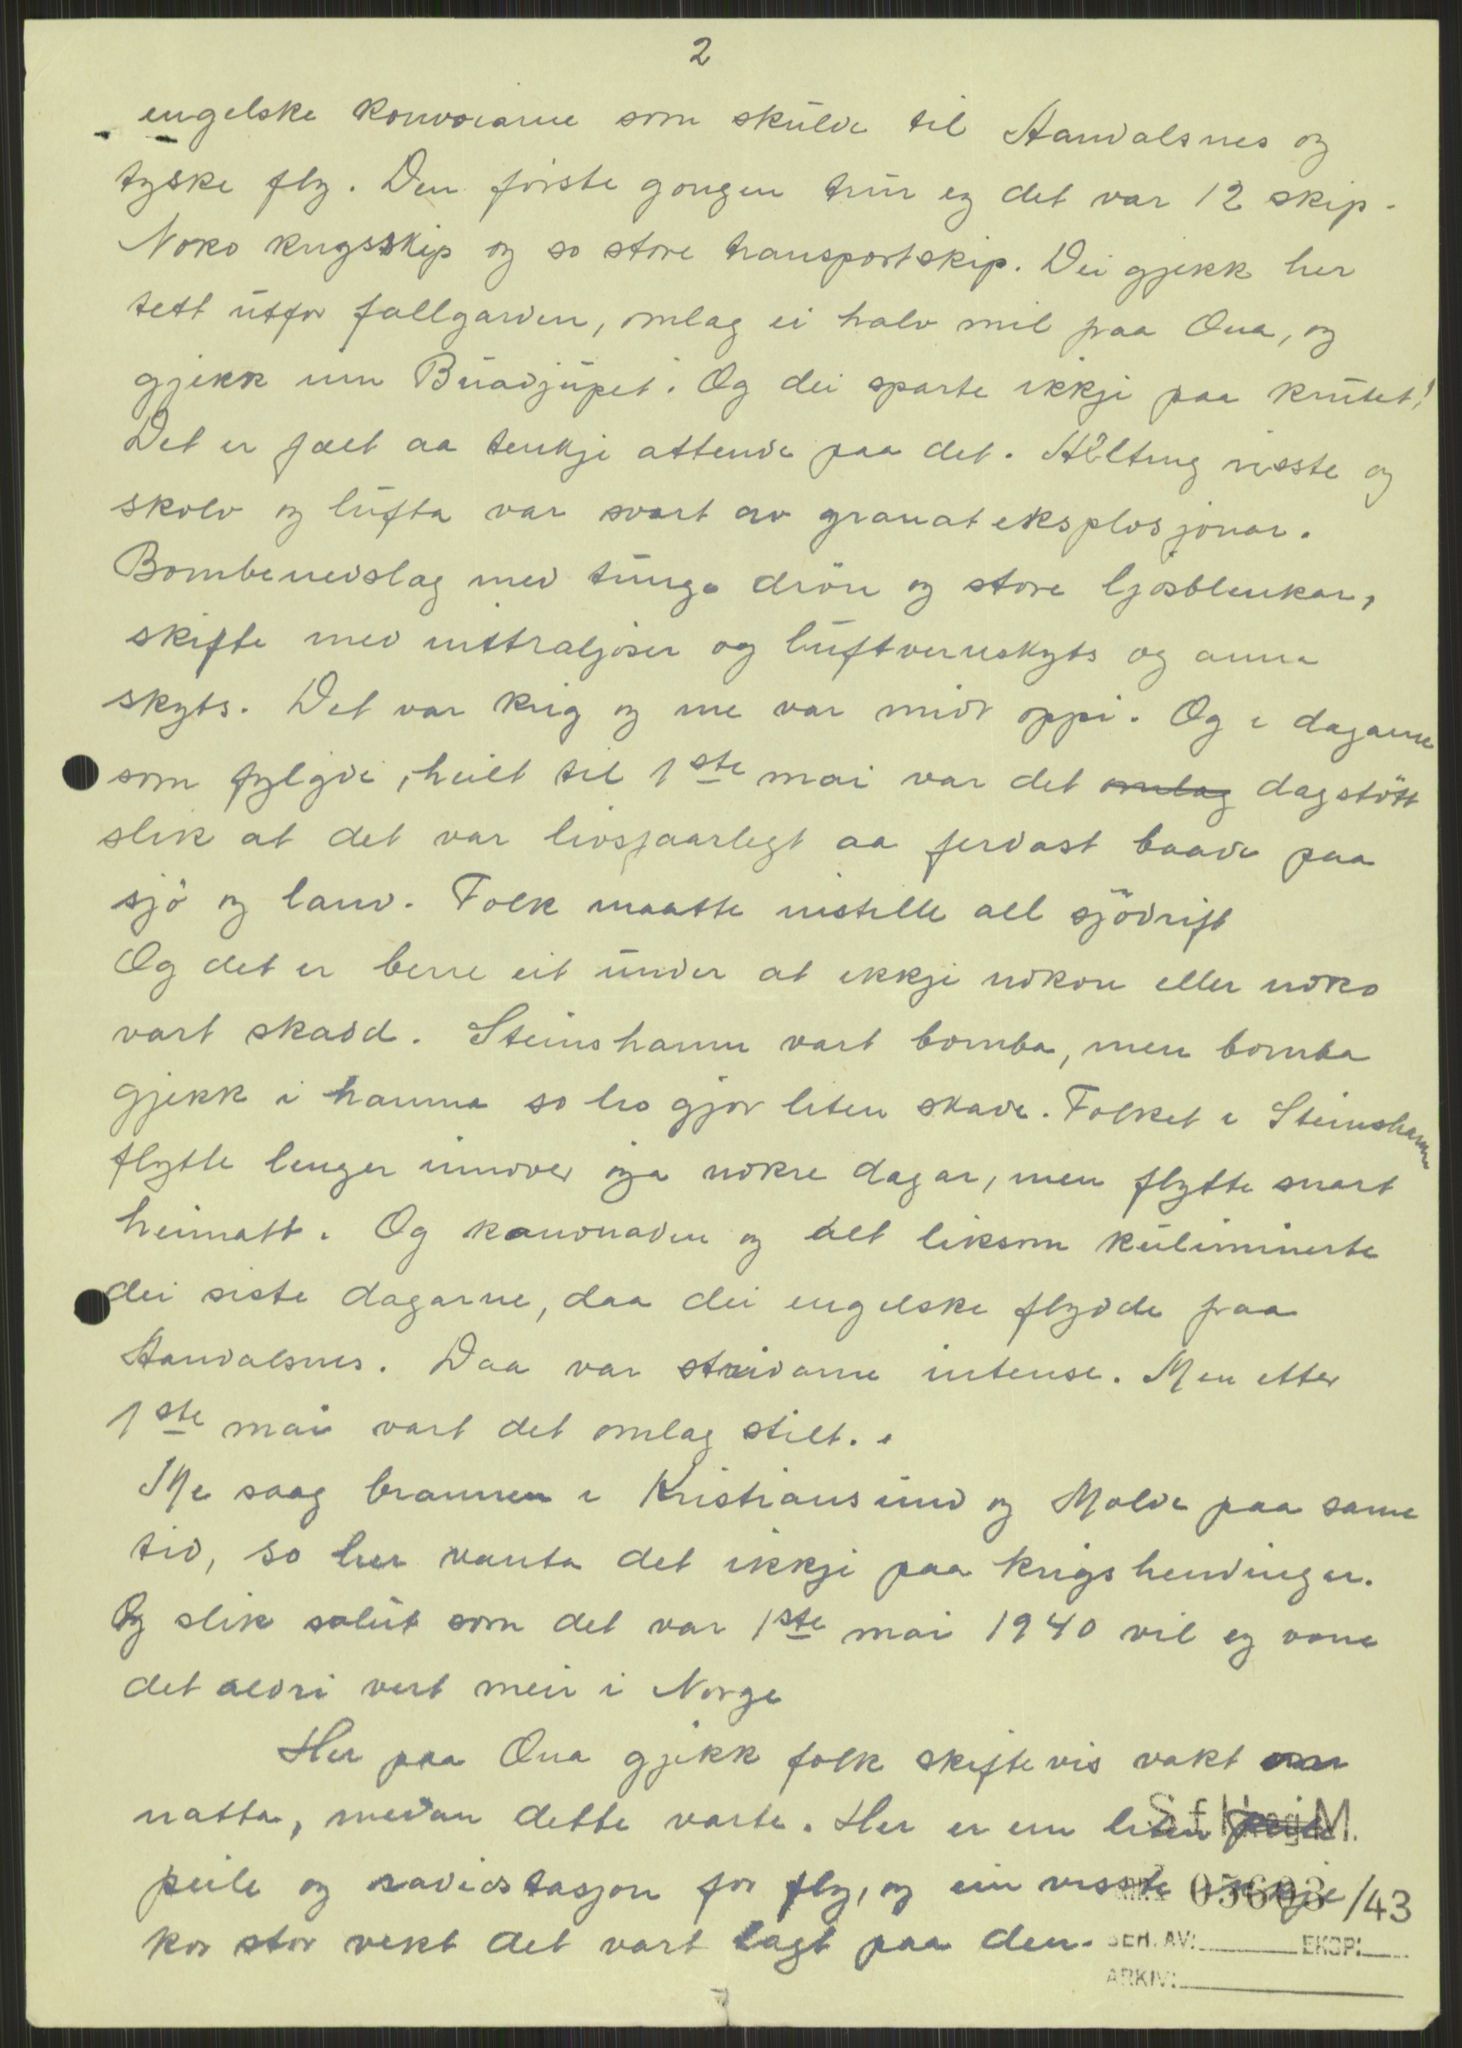 2
engelske konvoiarne som skulde til Aandalsnes og
tyske fly. Den förste gongen trur eg det var 12 skip.
Noko krigsskip og so store transportskip. Dei gjekk her
tett utfor fallgarden, omlag ei halv mil paa Ona, og
gjekk inn Buadjupet. Og dei sparte ikkje paa krutet!
Det er fælt aa tenkje attende paa det. Allting risste og
skolv og lufta var svart av granateksplosjonar.
Bombenedslag med tunge drön og store ljosblenkar,
skifte med mitraljöser og luftvernskyts og anna
skyts. Det var krig og me var midt oppi. Og i dagarne
som fylgde, heilt til 1ste mai var det omlag dagstött
slik at det var livsfaarlegt aa ferdast baade paa
sjö og land. Folk maatte instille all sjödrift
Og det er berre eit under at ikkje nokon eller noko
vart skadd. Steinshamn vart bomba, men bomba
gjekk i hamna so ho gjor liten skade. Folket i Steinshamn
flytte lenger innover öya nokre dagar, men flytte snart
heimatt. Og kanonaden og alt liksom kulminerte
dei siste dagarne, daa dei engelske flydde fraa
Aandalsnes. Daa var stridarne intense. Men etter
1ste mai vart det omlag stilt.
Me saag brannen i Kristiansund og Molde paa same
tid, so her vanta det ikkje paa krigshendingar.
Og slik salut som det var 1ste mai 1940 vil eg vone
det aldri vert meir i Norge
Her paa Ona gjekk folk skiftevis vakt om
natta, medan dette varte. Her er ein liten
peile og radiostasjon for fly, og ein visste ikkje
kor stor vekt det vart lagt paa den.
S.f.Krigj.M.
05603/43
BEH. AV: EKSP:
ARKIV: